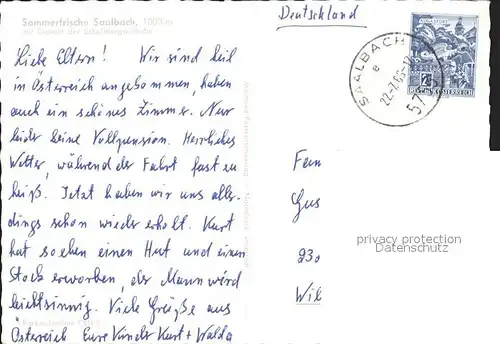 Sommerfrische Saalbach, 1003 m
Deutschland
Liebe Eltern! Wir sind heil
in Österreich angekommen, haben
auch ein schönes Zimmer. Nur
leider keine Vollpension. Herrliches
Wetter, während der Fahrt fast zu
heiß. Jetzt haben wir uns aller-
dings schon wieder erholt. Kurt
hat soeben einen Hut und einen
Stock erworben, der Mann wird
leichtsinnig. Viele Grüße aus
Österreich Eure Kinder Kurt + Walda
SAALBACH
22.-7.66-12
57
2
Fam
Gus
230
Wil
privacy protection
Datenschutz